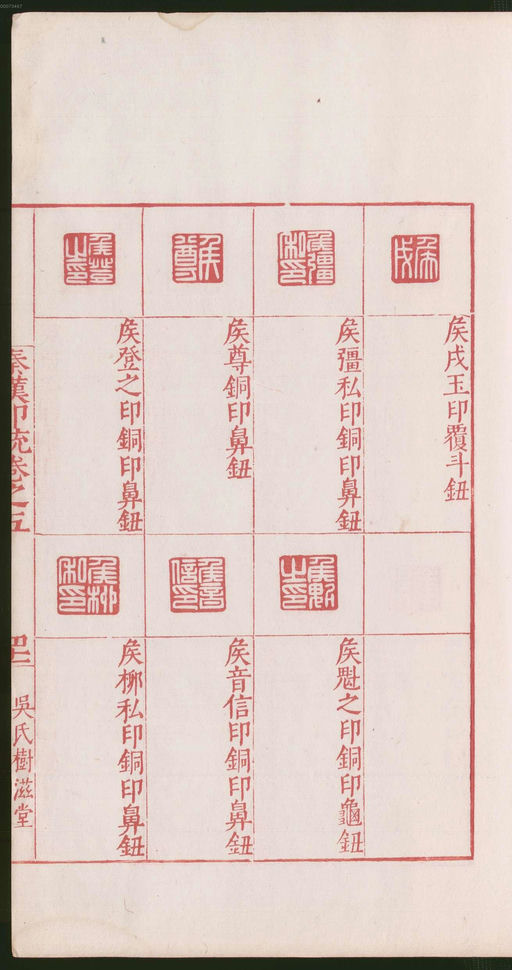 矦戌玉印覆斗鈕
矦彊私印銅印鼻鈕
矦尊銅印鼻鈕
矦登之印銅印鼻鈕
矦之印銅印龜鈕
矦音信印銅印鼻鈕
矦栁私印銅印鼻鈕
秦漢印統卷之五
吳氏樹滋堂